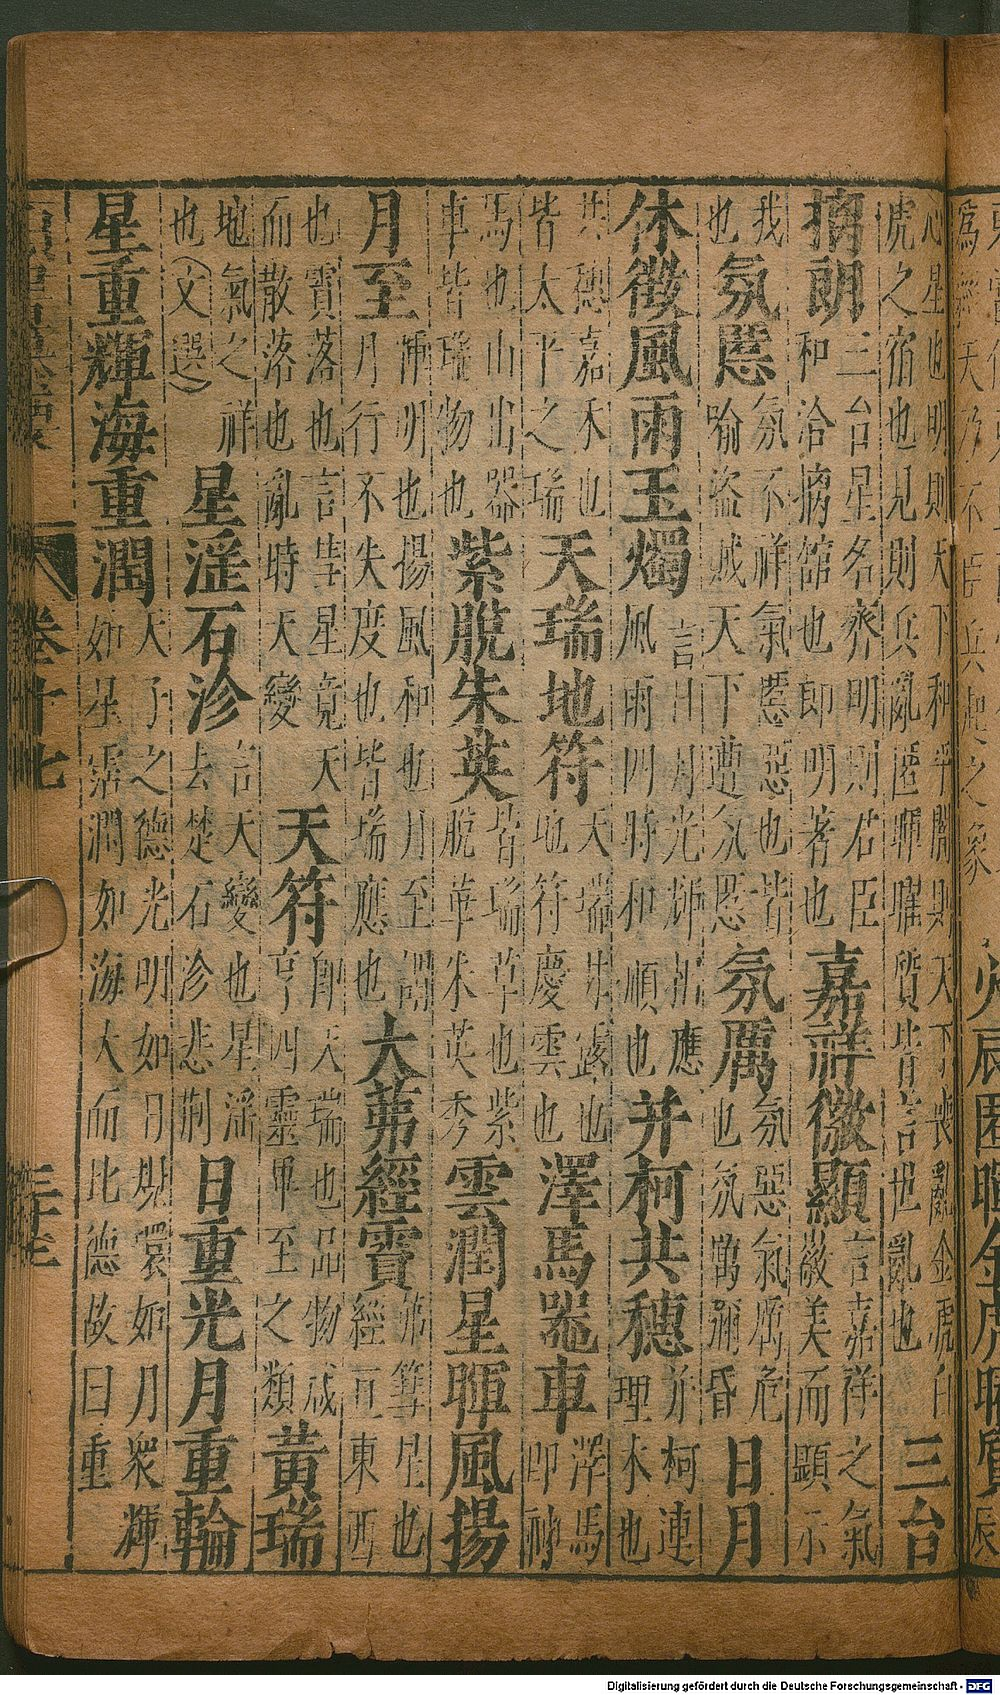 火辰匿暉金虎曜質
心星也明則天下和平闇則天下喪亂金虎白
虎之宿也見則兵亂匿暉曜質皆言世亂也
三台
摛朗
三台星名齊明則右臣
和洽摛舘也即明著也
嘉祥徽顯
言嘉祥之氣
徽美而顯示
我
也
氛慝
氛不祥氣慝惡也皆
喻盜賊天下遭氛慝
氛厲
氛惡氣厲危
也氛厲彌昏
日月
休徵風雨玉燭
言日月光輝禎應
風雨四時和順也
并柯共穗
并柯連
理木也
共穗嘉禾也
皆太平之瑞
天瑞地符
天瑞甘露也
地符慶雲也
澤馬噐車
澤馬
即神
馬也山出器
車皆瑞物也
紫脫朱英
皆瑞草也紫
脫華朱英秀
雲潤星暉風揚
月至
潤明也揚風和也月至謂
月行不失度也皆瑞應也
大茀經實
茀篲星也
經亘東西
也實落也言彗星竟天
而散落也亂時天變
天符
即天瑞也品物咸
亨四靈畢至之類
黃瑞
地氣之祥
也(文選)
星淫石沴
言天變也星淫
去楚石沴悲荆
日重光月重輪
星重輝海重潤
天子之德光明如日規環如月衆輝
如星霑潤如海太而比德故曰重
卷十七
三十七
Digitalisierung gefördert durch die Deutsche Forschungsgemeinschaft - DFG